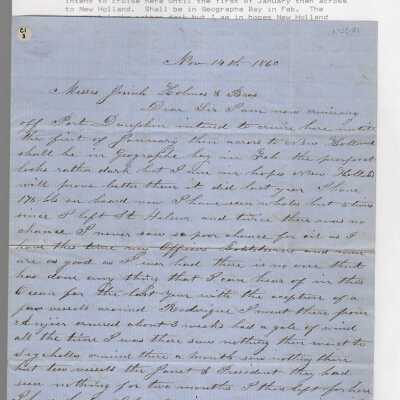 intend to cruise here until the first of January then across
to New Holland. Shall be in Geographe Bay in Feb. The
but I am in hopes New Holland
C1
3
Nov 14th 1860
Messrs Josiah Holmes & Bros
Dear Sir I am now cruising
off Port Dauphin intend to cruise here until
the first of January then across to New Holland
shall be in Geographe bay in Feb the prospect
looks rather dark but I am in hopes New Holland
will prove better than it did last year I have
176 bbls on board now I have seen whales but times
since I left St Helena and twice there was no
chance I never saw so poor chance for oil as I
have this time my Officers Boatsteerers and men
are as good as I ever had there is no one that
has done any thing that I can hear of in this
Ocean for the last year with the exeption of a
few vessels around Rodrigue I went there from
cruised about 3 weeks had a gale of wind
all the time I was there saw nothing then went to
Seychelles cruised there a month saw nothing there
but two vessels the Janet & President they had
seen nothing for two months I then left for here